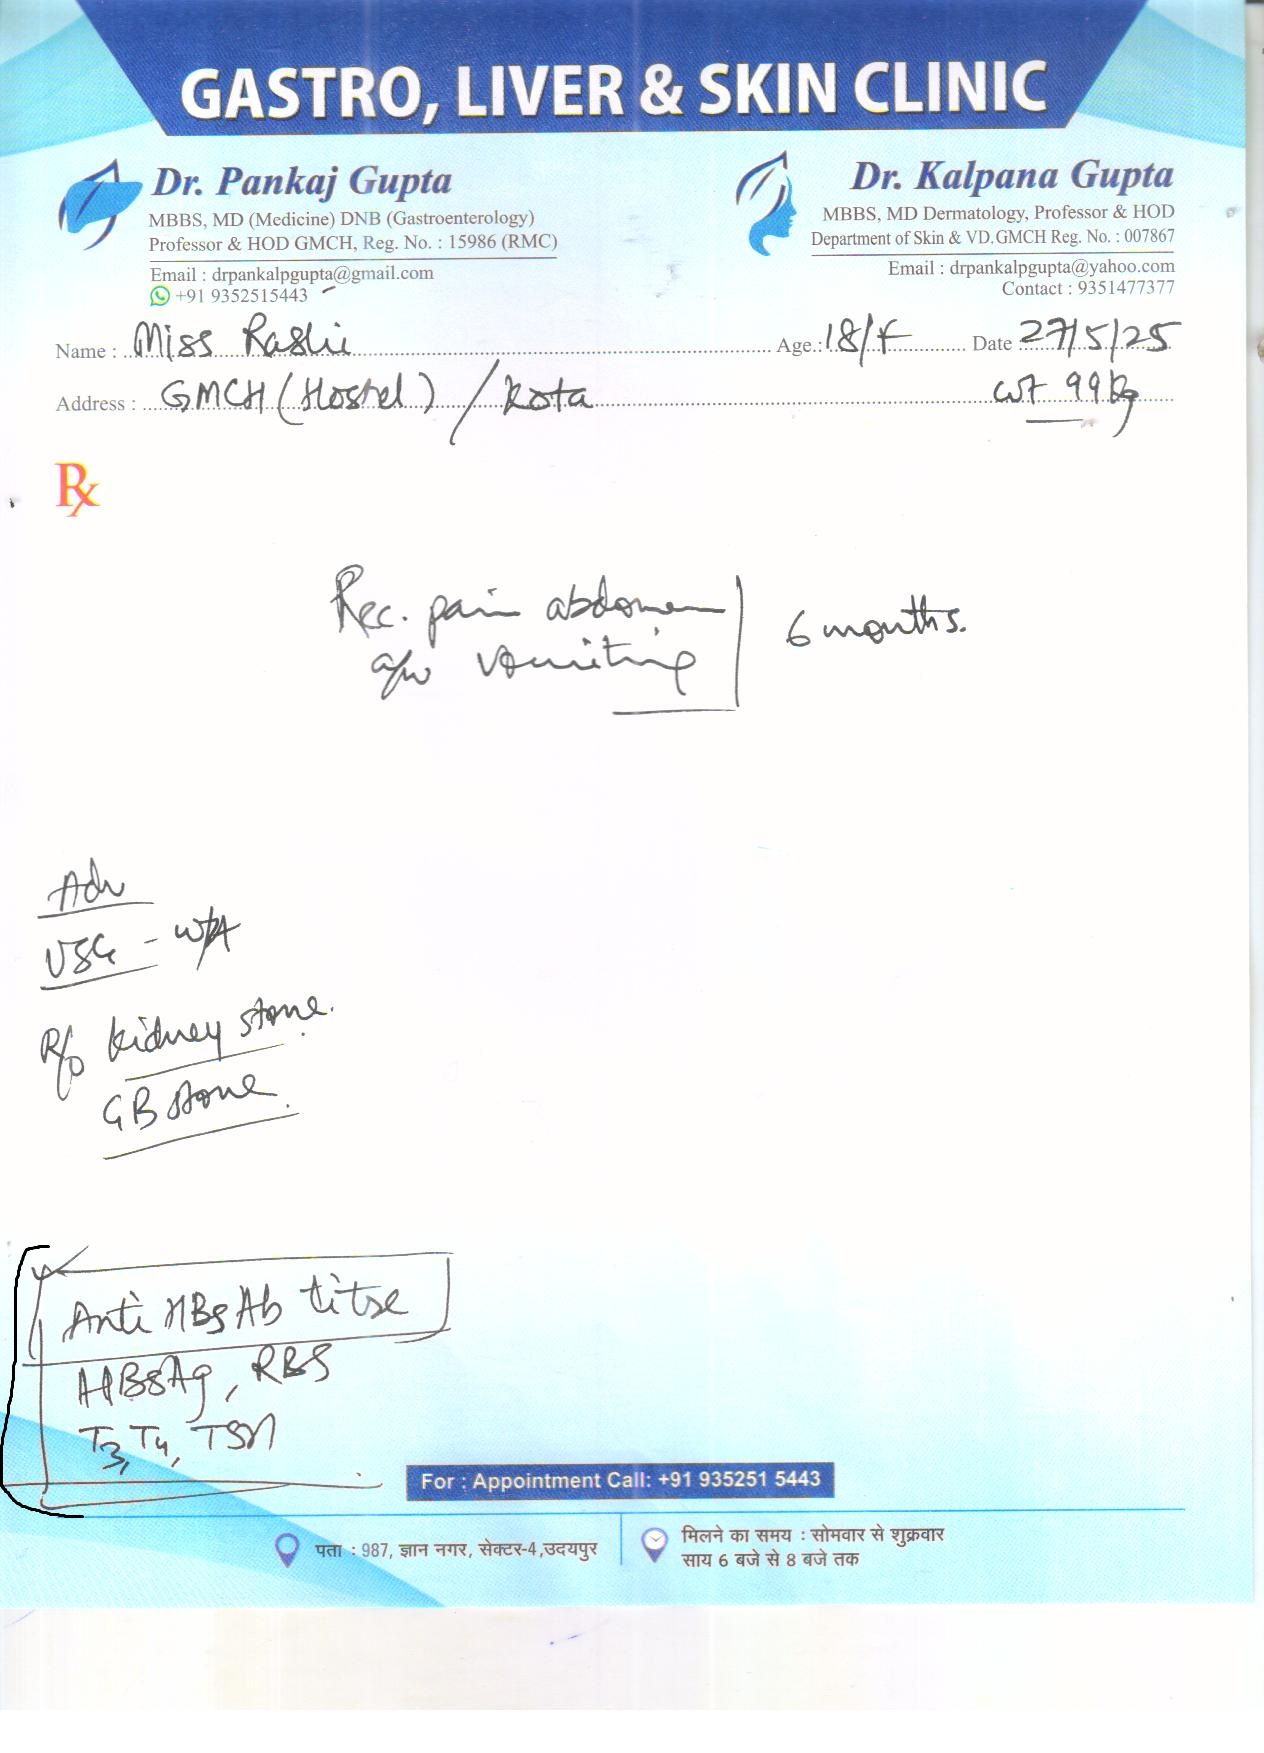 GASTRO, LIVER & SKIN CLINIC
Dr. Pankaj Gupta
MBBS, MD (Medicine) DNB (Gastroenterology)
Professor & HOD GMCH, Reg. No. : 15986 (RMC)
Email : drpankalpgupta@gmail.com
+91 9352515443
Dr. Kalpana Gupta
MBBS, MD Dermatology, Professor & HOD
Department of Skin & VD.GMCH Reg. No. : 007867
Email : drpankalpgupta@yahoo.com
Contact : 9351477377
Name : Miss Rashi Age.: 18/F Date : 27/5/25
Address : GMCH (Hostel) / Kota wt 99 kg
Rx
Rec. pain abdomen
a/w vomiting
6 months.
Adv
USG - W/A
R/o kidney stone.
GB stone.
Anti HBsAb titre
HBsAg, RBS
T3, T4, TSH
For : Appointment Call: +91 935251 5443
पता : 987, ज्ञान नगर, सेक्टर-4,उदयपुर
मिलने का समय : सोमवार से शुक्रवार
साय 6 बजे से 8 बजे तक